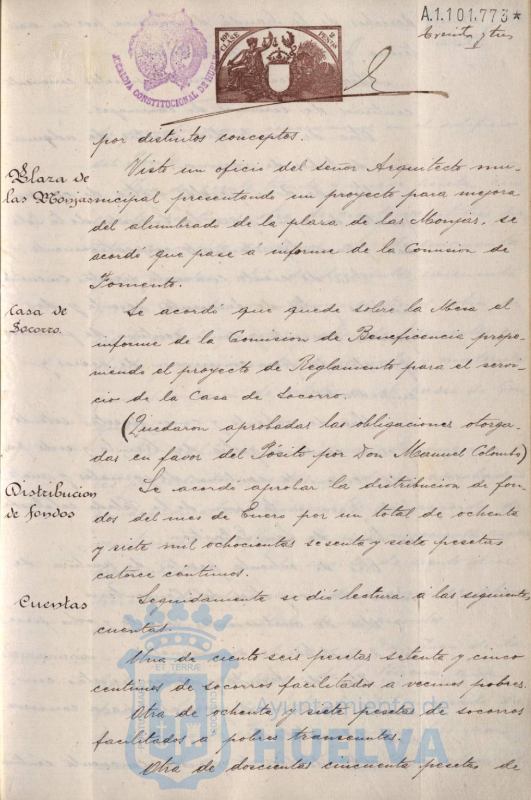 A.1.101.773*
10ª CLASE 2 PESETAS
ALCALDIA CONSTITUCIONAL DE HUELVA
treinta y tres
por distintos conceptos.
Plaza de las Monjas
Visto un oficio del señor Arquitecto mu-
nicipal presentando un proyecto para mejora
del alumbrado de la plaza de las Monjas, se
acordó que pase á informe de la Comision de
Fomento.
Casa de Socorro.
Se acordó que quede sobre la Mesa el
informe de la Comision de Beneficencia propo-
niendo el proyecto de Reglamento para el servi-
cio de la Casa de Socorro.
(Quedaron aprobadas las obligaciones otorga-
das en favor del Pósito por Don Manuel Colombo)
Distribucion de fondos
Se acordo aprobar la distribucion de fon-
dos del mes de Enero por un total de ochenta
y siete mil ochocientas sesenta y siete pesetas
catorce centimos.
Cuentas
Seguidamente se dió lectura á las siguientes
cuentas.
Una de ciento seis pesetas setenta y cinco
centimos de socorros facilitados á vecinos pobres.
Otra de ochenta y siete pesetas de socorros
facilitados a pobres transeuntes.
Otra de doscientas cincuenta pesetas de
Ayuntamiento de
HUELVA